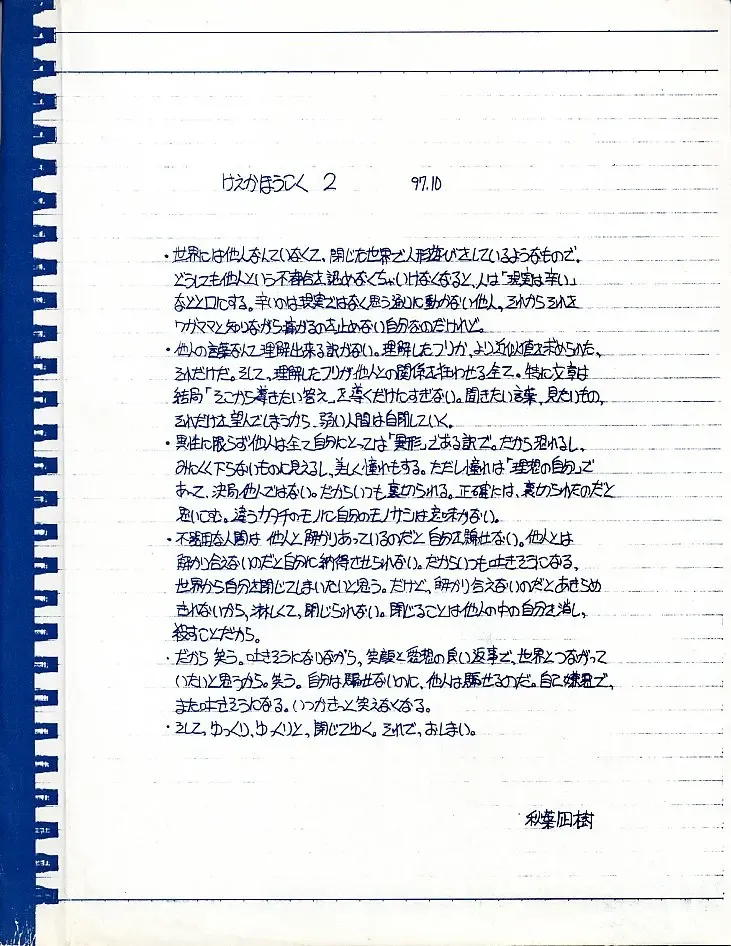 けえかほうこく 2 97.10
・世界には他人なんていなくて、閉じた世界で人形遊びをしているようなもので。
どうしても他人という不都合を認めなくちゃいけなくなると、人は「現実は辛い」
などと口にする。辛いのは現実ではなく思う通りに動かない他人、それからそれを
ワガママと知りながら嘆がるのを止めない自分なのだけれど。
・他人の言葉なんて理解出来る訳がない。理解したフリか、より近似値を求められた、
それだけだ。そして、理解したフリが他人との関係を狂わせる全て。特に文章は
結局「そこから導きたい答え」を導くだけにすぎない。聞きたい言葉、見たいもの、
それだけを望んでしまうから、弱い人間は自閉していく。
・異性に限らず他人は全て自分にとっては「異形」である訳で。だから恐れるし、
みにくく下らないものに見えるし、美しく憧れもする。ただし憧れは「理想の自分」で
あって、決局他人ではない。だからいつも裏切られる。正確には、裏切られたのだと
思いこむ。違うカタチのモノに自分のモノサシは意味がない。
・不器用な人間は 他人と解かりあっているのだと自分を騙せない。他人とは
解かり合えないのだと自分に納得させられない。だからいつも吐きそうになる、
世界から自分を閉じてしまいたいと思う。だけど、解かり合えないのだとあきらめ
きれないから、淋しくて、閉じられない。閉じることは他人の中の自分を消し、
殺すことだから。
・だから 笑う。吐きそうになりながら、笑顔と愛想の良い返事で、世界とつながって
いたいと思うから。笑う。自分は騙せないのに、他人は騙せるのだ。自己嫌悪で、
また吐きそうになる。いつかきっと笑えなくなる。
・そして、ゆっくり、ゆっくりと、閉じてゆく。それで、おしまい。
秋葉凪樹